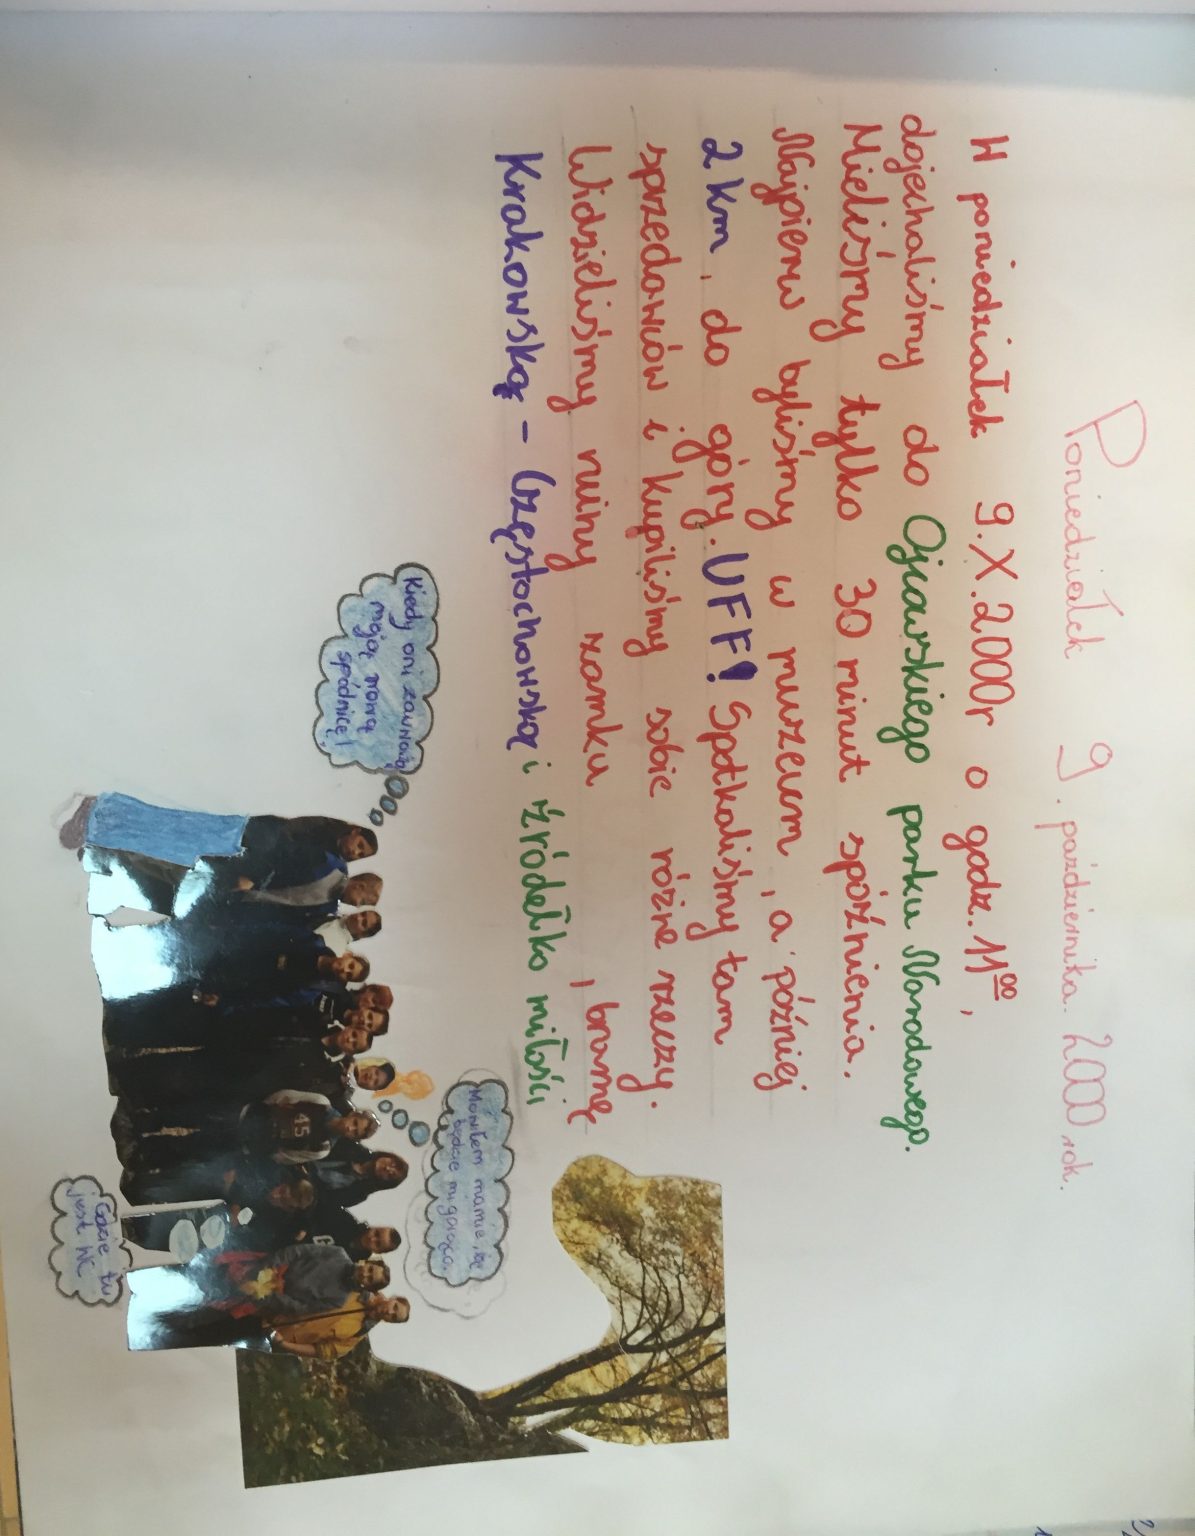 Poniedziałek 9. października 2000 rok.
W poniedziałek 9.X.2000r o godz. 11⁰⁰,
dojechaliśmy do Ojcowskiego parku Narodowego.
Mieliśmy tylko 30 minut spóźnienia.
Najpierw byliśmy w muzeum, a później
2 km, do góry. UFF! Spotkaliśmy tam
sprzedawców i kupiliśmy sobie różne rzeczy.
Widzieliśmy ruiny zamku, bramę
Krakowską – Częstochowską i źródełko miłości
Kiedy oni zauważą
moją nową
spódnicę!
Mówiłem mamie, że
będzie mi gorąco.
Gdzie tu
just WC
45